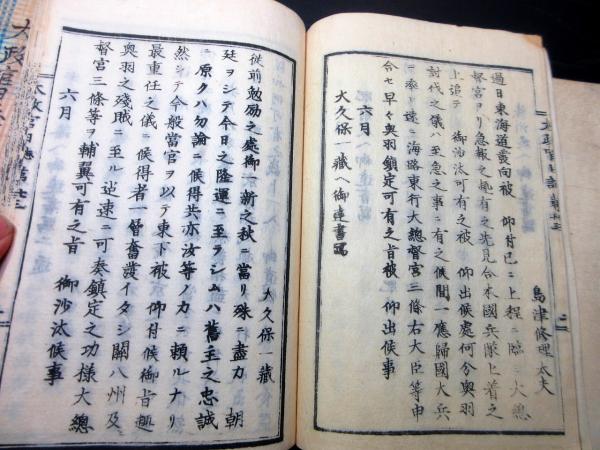 島津修理太夫
過日東海道發向被　仰付已ニ上程ニ臨ミ大總
督官ヨリ急報之趣有之先見合本國兵隊上着之
上追テ　御沙汰可有之被　仰出候處何分奥羽
討代之儀ハ至急之事ニ有之候間一應歸國大兵
ヲ率ヰ速ニ海路東行大總督宮三條右大臣等申
合セ早々奥羽鎮定可有之旨被　仰出候事
六月
大久保一藏ヘ御達書寫
大久保一藏
從前勉励之處御一新之秋ニ當リ殊ニ盡力　朝
廷ヲシテ今日之隆運ニ至ラシムハ舊主之忠誠
ニ原クハ勿論ニ候得共亦汝等ノ力ニ頼ルナリ
然シテ今般當官ヲ以テ東下被　仰付候御旨趣
最重任之儀ニ候得者一層奮發イタシ關八州及
奥羽之殘賊ニ至ル迠速ニ可奏鎮定之功様大總
督宮三條等ヲ輔翼可有之旨　御沙汰候事
六月